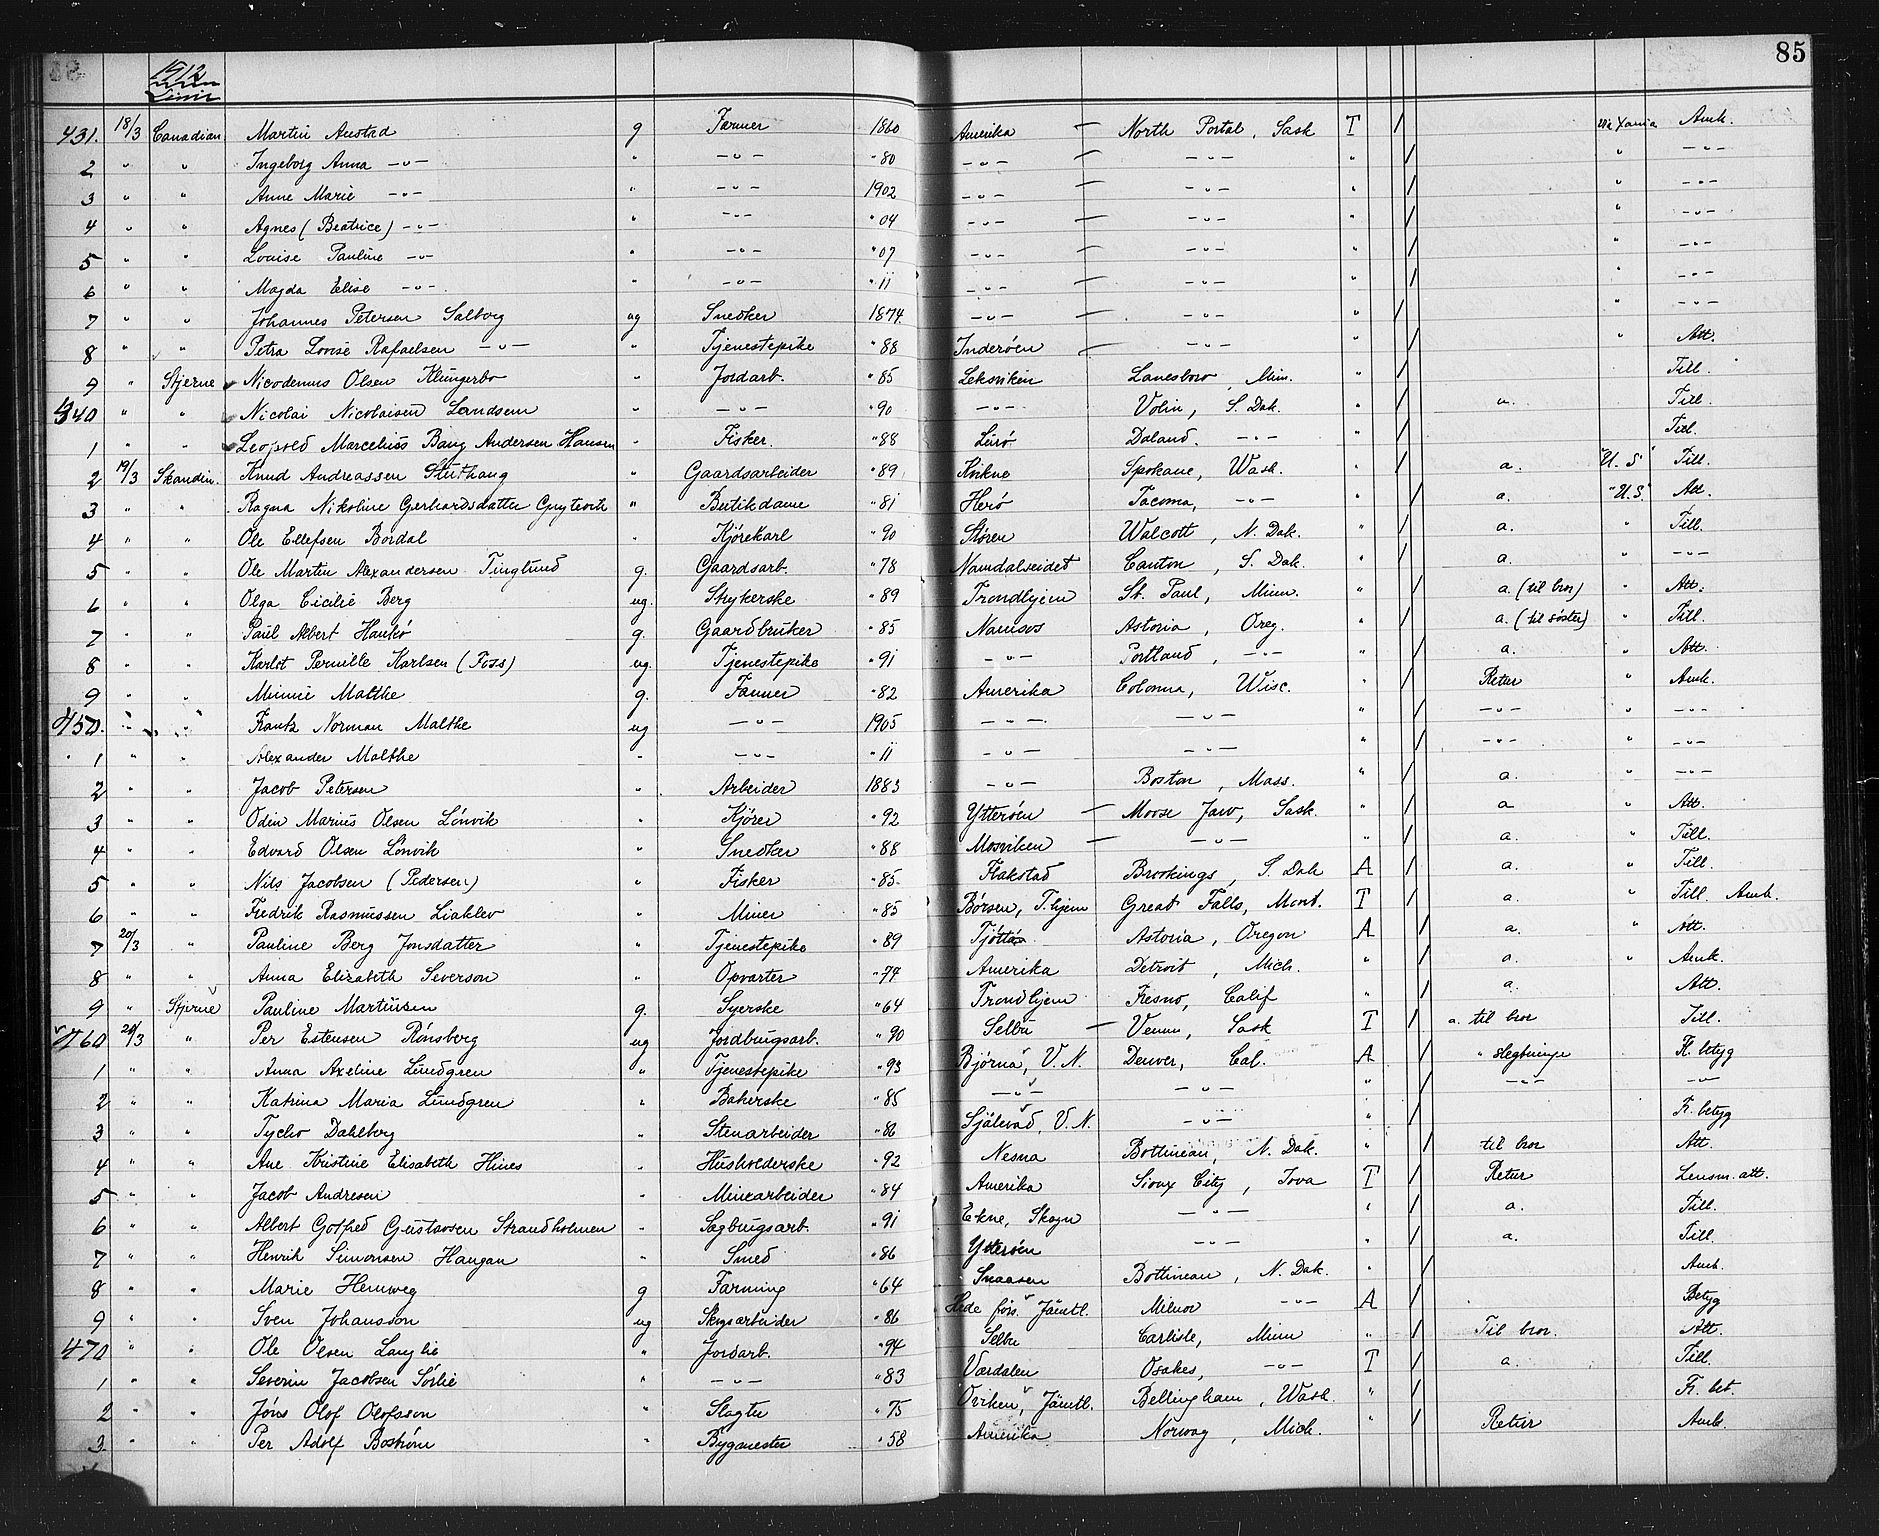 85
1912
Linie
431. 18/3 Canadian Martin Anstad g Farmer 1860 Amerika — North Portal, Sask T / via Xania Amk.
2 " " Ingeborg Anna -"- " -"- " 80 -"- — -"- " / " -"-
3 " " Anne Marie -"- " -"- 1902 -"- — -"- " / " -"-
4 " " Agnes (Beatrice) -"- " -"- " 04 -"- — -"- " / " -"-
5 " " Louise Pauline -"- " -"- " 07 -"- — -"- " / " -"-
6 " " Magda Elise -"- " -"- " 11 -"- — -"- " / " -"-
7 " " Johannes Petersen Salborg ug Snedker 1874. -"- — -"- " / " -"-
8 " " Petra Lovise Rafaelsen -"- " Tjenestepike " 88 Inderöen — -"- " / " Att.
9 " Stjerne Nicodemus Olsen Klungerbo " Jordarb. " 85 Leksviken Lanesboro, Min. " / Till.
440 " " Nicolai Nicolaisen Landsem " -"- " 90 -"- Volin, S. Dak. " / a. Till.
1 " " Leopold Marcelius Bang Andersen Hansen " Fisker. " 88 Daland. -"- " / Till.
2 19/3 Skandin. Knud Andreassen " Gaardsarbeider " 89 Kvikne Spokane, Wash. " / a. "U.S." Till.
3 " " Ragna Nikoline Gerhardsdatter " Butikdame " 81 Herö Tacoma, -"- " / a. "U.S." Att.
4 " " Ole Ellefsen Bordal " Kjörekarl " 90 Stören Walcott, N. Dak. " / a. " Till.
5 " " Ole Martin Alexandersen Tinglund g. Gaardsarb. " 78 Namdalseidet Canton, S. Dak. " / a. " -"-
6 " " Olga Cicilie Berg ug. Strykerske " 89 Trondhjem St. Paul, Minn. " / a. (til bror) " Att.
7 " " Paul Albert Hankö g. Gaardbruker " 85 Namsos Astoria, Oreg. " / a. (til söster) " Till.
8 " " Karlot Pernille Karlsen (Foss) ug. Tjenestepike " 91 -"- Portland, -"- " / a. " Att.
9 " " Minnie Malthe g. Farmer " 82 Amerika Colonna, Wisc. " / Retur " Amk.
450. " " Frantz Norman Malthe ug -"- 1905 -"- -"- " / -"- " -"-
1 " " Alexander Malthe " -"- " 11 -"- -"- " / -"- " -"-
2 " " Jacob Petersen " Arbeider 1883 -"- Boston, Mass. " / a. " -"-
3 " " Odin Marius Olsen Lönvik " Kjörer " 92 Ytteröen — Moose Jaw, Sask. " / a " Att.
4 " " Edvard Olsen Lönvik " Snedker " 88 Mosviken — -"- " / a. " Till.
5 " " Nils Jacobsen (Pedersen) " Fisker " 85. Flakstad Brookings, S. Dak A / a. " Till.
6 " " Fredrik Rasmussen Liaklev " Miner " 85 Börsen, T.hjem Great Falls, Mont. T / a. " Till. Amk.
7 20/3 " Pauline Berg Jonsdatter " Tjenestepike " 89 Tjöttö Astoria, Oregon A / a. " Att.
8 " " Anna Elizabeth Severson " Opvarter " 74 Amerika Detroit, Mich. " / a. " Amk.
9 " Stjerne Pauline Martinsen g. Syerske " 64 Trondhjem Fresno, Calif " / a. Att.
460 21/3 " Per Estensen Rönsberg ug Jordbrugsarb. " 90 Selbu — Venn, Sask T / a. til bror Till.
1 " " Anna Axeline Lundgren " Tjenestepike " 93 Björna, V.N. Denver, Cal. A / " slegtninge F. betyg
2 " " Katrina Maria Lundgren " Bakerske " 85 -"- -"- " / -"- -"-
3 " " Tycho Dahlberg " Stenarbeider " 86 Själevad, V.N. -"- " / F. betyg
4 " " Ane Kristine Elisabeth Hines " Husholderske " 92 Nesna Bottineau, N. Dak. " / til bror Att.
5 " " Jacob Andresen " Minearbeider " 84 Amerika Sioux City, Iova T / Retur Lensm. att.
6 " " Albert Gotfred Gustavsen Strandholmen " Sagbrugsarb. " 91 Ekne, Skogn -"- " / a. Till.
7 " " Henrik Simonsen Haugan " Smed " 86 Ytteröen -"- " / a. Till.
8 " " Marie Hemweg g Farming " 64 Snaasen Bottineau, N. Dak. " / Amk.
9 " " Sven Johansson ug Skogsarbeider " 86 Hede förs. Jämtl. Milnor -"- A / Betyg
470 " " Ole Olsen Langlie " Jordarb. " 94 Selbu Carlisle, Minn " / Til bror. Att.
1 " " Severin Jacobsen Sörlie " -"- " 83 Værdalen Osakes, -"- T / a. Till.
2 " " Jöns Olof Olofsson " Slagter " 75 Oviken, Jämtl. Bellingham, Wash. " / F. bet.
3 " " Per Adolf Boström " Bygmester " 58 Amerika Norway, Mich. " / Retur Amk.